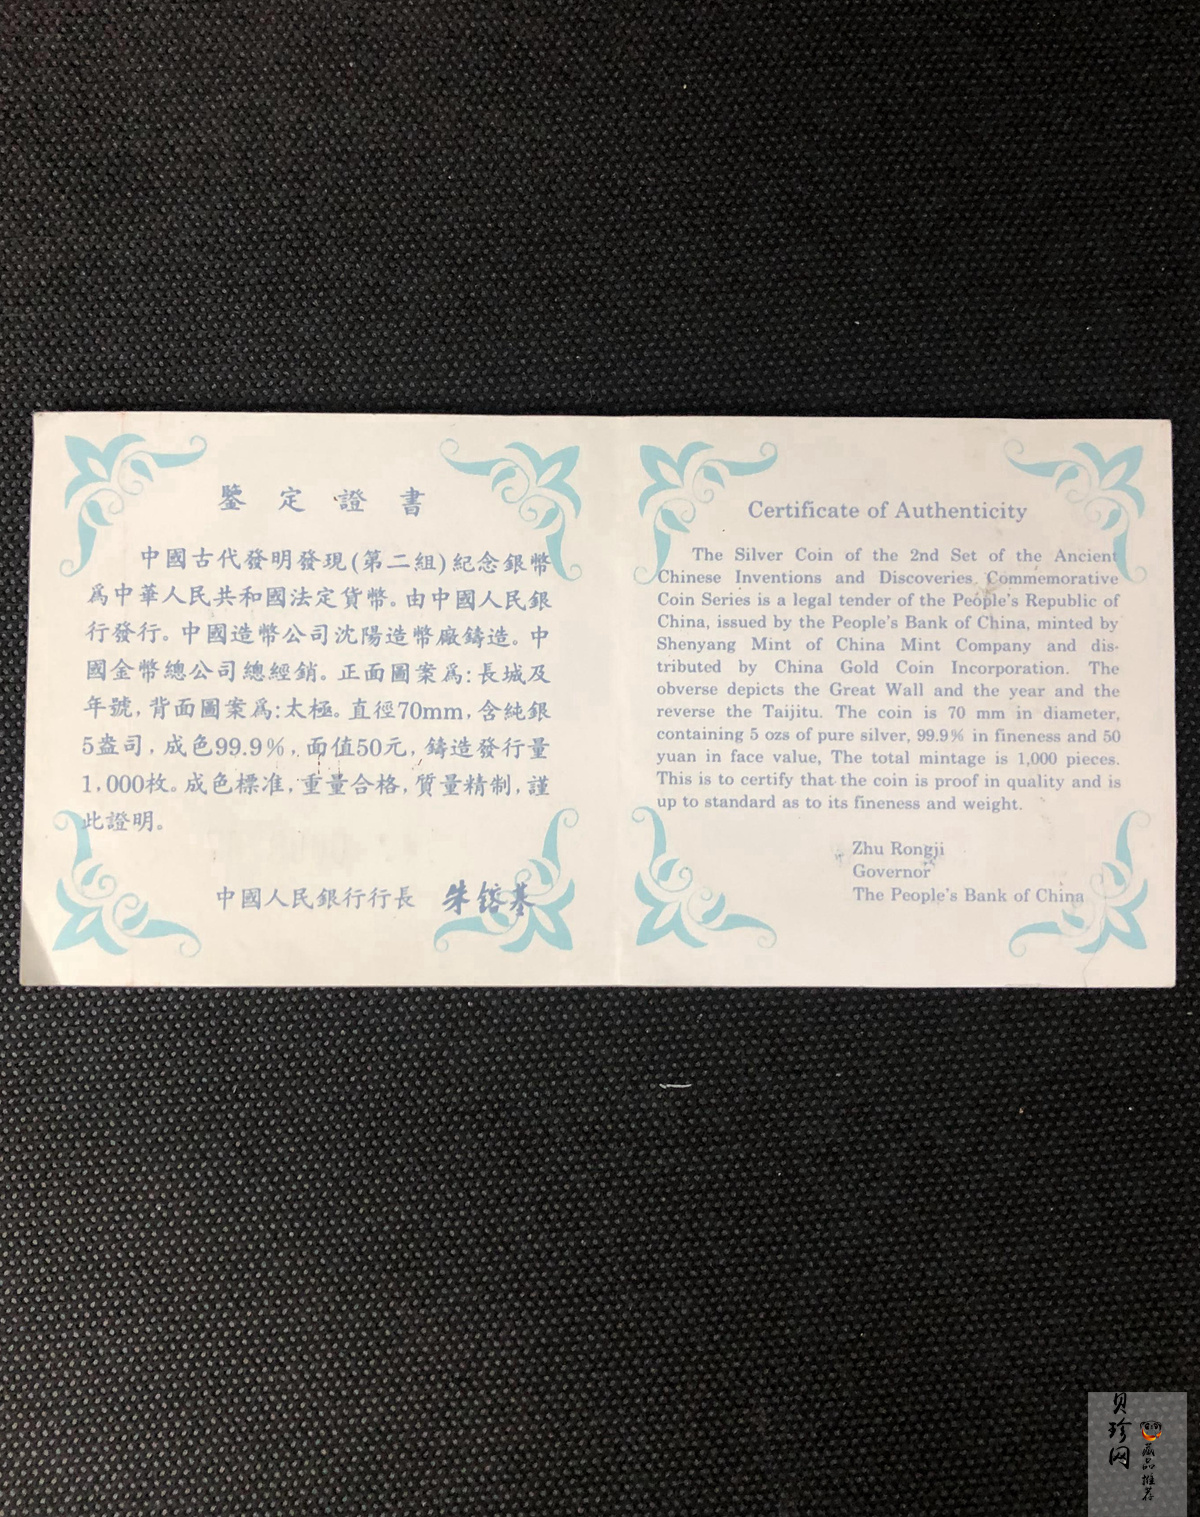 鑒定證書
中國古代發明發現(第二組)紀念銀幣
爲中華人民共和國法定貨幣。由中國人民銀
行發行。中國造幣公司沈陽造幣廠鑄造。中
國金幣總公司總經銷。正面圖案爲:長城及
年號,背面圖案爲:太極。直徑70mm,含純銀
5盎司,成色99.9%,面值50元,鑄造發行量
1,000枚。成色標准,重量合格,質量精制,謹
此證明。
中國人民銀行行長 朱鎔基
Certificate of Authenticity
The Silver Coin of the 2nd Set of the Ancient
Chinese Inventions and Discoveries Commemorative
Coin Series is a legal tender of the People's Republic of
China, issued by the People's Bank of China, minted by
Shenyang Mint of China Mint Company and dis-
tributed by China Gold Coin Incorporation. The
obverse depicts the Great Wall and the year and the
reverse the Taijitu. The coin is 70 mm in diameter,
containing 5 ozs of pure silver, 99.9% in fineness and 50
yuan in face value, The total mintage is 1,000 pieces.
This is to certify that the coin is proof in quality and is
up to standard as to its fineness and weight.
Zhu Rongji
Governor
The People's Bank of China
贝珍网
藏品推荐